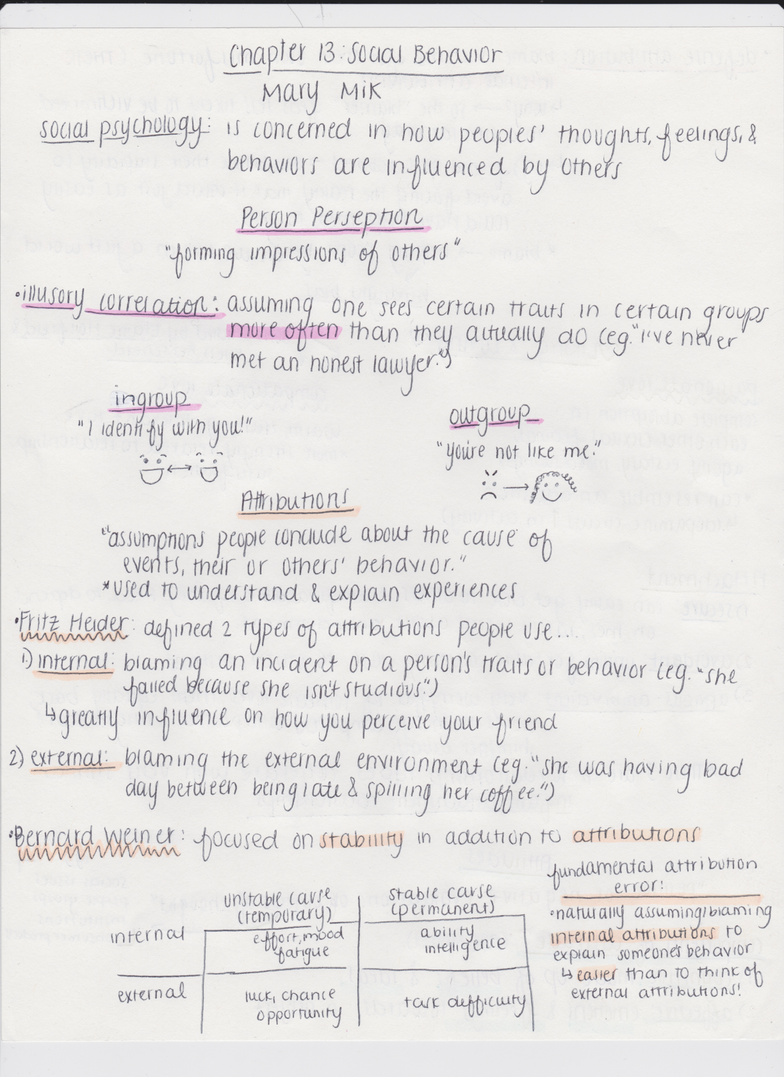 Chapter 13: Social Behavior
Mary Mik
social psychology: is concerned in how peoples' thoughts, feelings, &
behaviors are influenced by others
Person Perseption
"forming impressions of others"
•illusory correlation: assuming one sees certain traits in certain groups
more often than they actually do (eg. "I've never
met an honest lawyer.")
ingroup
"I identify with you!"
outgroup
"you're not like me."
Attributions
"assumptions people conclude about the cause of
events, their or others' behavior."
*used to understand & explain experiences
•Fritz Heider: defined 2 types of attributions people use...
1) internal: blaming an incident on a person's traits or behavior (eg. "she
failed because she isn't studious.")
↳greatly influence on how you perceive your friend
2) external: blaming the external environment (eg. "she was having bad
day between being late & spilling her coffee.")
•Bernard Weiner: focused on stability in addition to attributions
unstable cause
(temporary)
stable cause
(permanent)
internal
effort, mood
fatigue
ability
intelligence
external
luck, chance
opportunity
task difficulty
fundamental attribution
error:
•naturally assuming/blaming
internal attributions to
explain someone's behavior
↳ easier than to think of
external attributions!